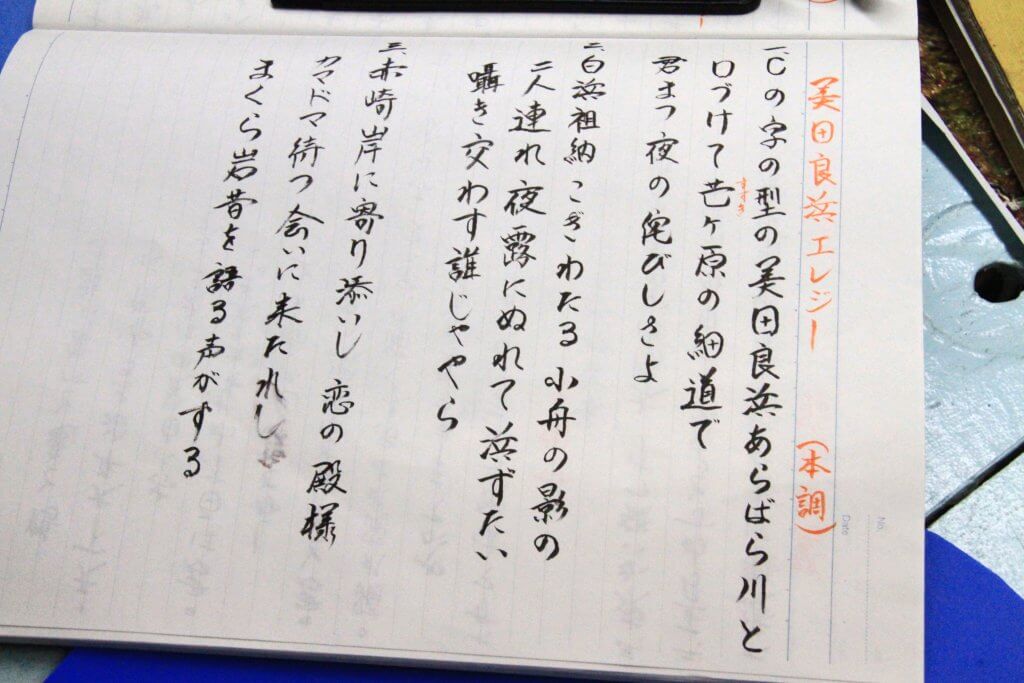 美田良浜エレジー (本調)
一、Cの字の型の美田良浜あらばら川と
口づけて芒ヶ原の細道で
すすき
君まつ夜の侘びしさよ
二、白浜祖納こぎわたる小舟の影の
二人連れ夜露にぬれて浜ずたい
囁き交わす誰じゃやら
三、赤崎岸に寄り添いし恋の殿様
カマドマ待つ会いに来たれし
まくら岩昔を語る声がする
No.
Date